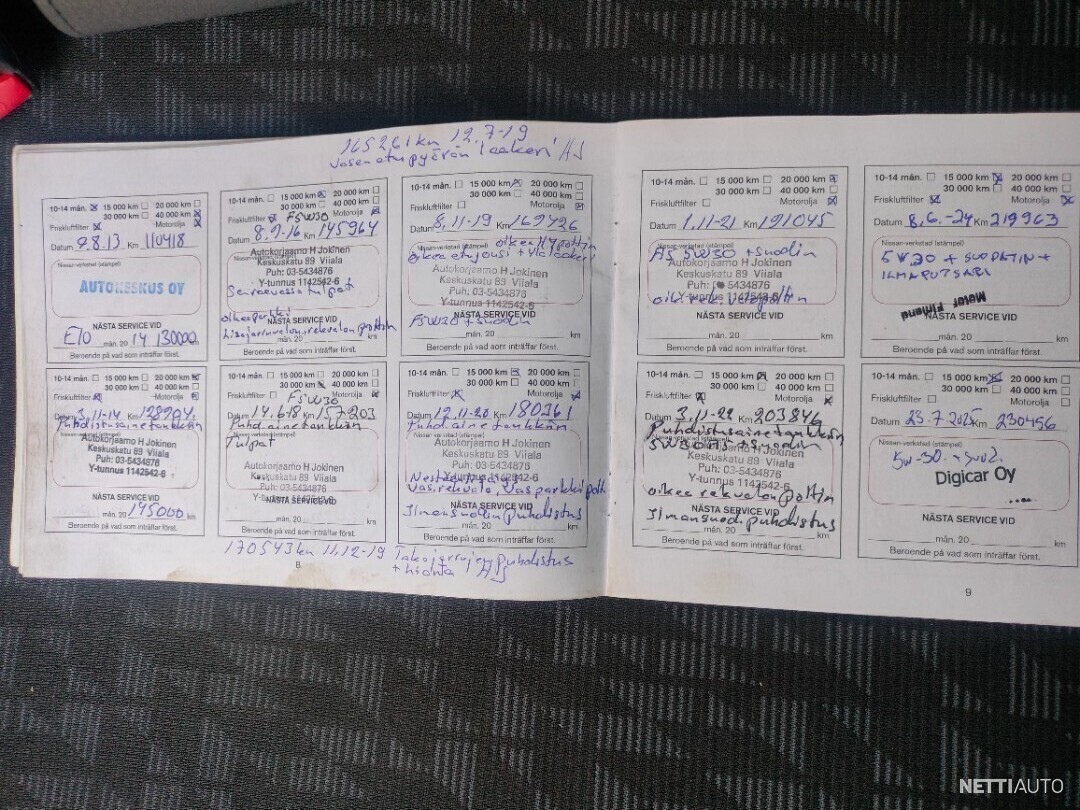 165261km 12.7-19
vasen etupyörän laakeri HJ
10-14 mån. 15 000 km 20 000 km
30 000 km 40 000 km
Friskluftfilter Motorolja
Datum 9.8.13 Km 110418
Nissan-verkstad (stämpel)
AUTOKESKUS OY
NÄSTA SERVICE VID
E70 mån. 20 14 130000
Beroende på vad som inträffar först.
15 000 km 20 000 km
30 000 km 40 000 km
Friskluftfilter F5W30 Motorolja
Datum 8.9-16 Km 145964
Autokorjaamo H Jokinen
Keskuskatu 89 Viiala
Puh: 03-5434876
Y-tunnus 1142542-6
tulpat
NÄSTA SERVICE VID
mån. 20 km
Beroende på vad som inträffar först.
10-14 mån. 15 000 km 20 000 km
30 000 km 40 000 km
Friskluftfilter Motorolja
Datum 8.11-19 Km 169426
oikea etujousi + ylälaakeri
Autokorjaamo H Jokinen
Keskuskatu 89 Viiala
Puh: 03-5434876
Y-tunnus 1142542-6
F5W30 + suodin
NÄSTA SERVICE VID
mån. 20 km
Beroende på vad som inträffar först.
10-14 mån. 15 000 km 20 000 km
30 000 km 40 000 km
Friskluftfilter Motorolja
Datum 3.11-14 Km
Puhdistusaine tankkiin
Autokorjaamo H Jokinen
Keskuskatu 89 Viiala
Puh: 03-5434876
Y-tunnus 1142542-6
NÄSTA SERVICE VID
mån. 20 145000 km
Beroende på vad som inträffar först.
10-14 mån. 15 000 km 20 000 km
30 000 km 40 000 km
Friskluftfilter F5W30 Motorolja
Datum 14.6-18 Km 157203
Puhd.aine tankkiin
Tulpat
Autokorjaamo H Jokinen
Keskuskatu 89 Viiala
Puh: 03-5434876
Y-tunnus 1142542-6
NÄSTA SERVICE VID
mån. 20 km
Beroende på vad som inträffar först.
10-14 mån. 15 000 km 20 000 km
30 000 km 40 000 km
Friskluftfilter Motorolja
Datum 12.11-20 Km 180361
Puhd.aine tankkiin
Autokorjaamo H Jokinen
Keskuskatu 89 Viiala
Puh: 03-5434876
Y-tunnus 1142542-6
vas.rekvalo, vas parkki
NÄSTA SERVICE VID
Ilmansuodin puhdistus
mån. 20 km
Beroende på vad som inträffar först.
170543km 11.12-19 Takajarrujen puhdistus
+ hionta HJ
8
10-14 mån. 15 000 km 20 000 km
30 000 km 40 000 km
Friskluftfilter Motorolja
Datum 1.11-21 Km 191045
5W30 + suodin
Autokorjaamo H Jokinen
Keskuskatu 89 Viiala
Puh: 03-5434876
Y-tunnus 1142542-6
NÄSTA SERVICE VID
mån. 20 km
Beroende på vad som inträffar först.
10-14 mån. 15 000 km 20 000 km
30 000 km 40 000 km
Friskluftfilter Motorolja
Datum 8.6.-24 Km 219963
Nissan-verkstad (stämpel)
5W30 + SUODATIN +
ILMAPUTSARI
Finland
NÄSTA SERVICE VID
mån. 20 km
Beroende på vad som inträffar först.
10-14 mån. 15 000 km 20 000 km
30 000 km 40 000 km
Friskluftfilter Motorolja
Datum 3.11-22 Km 203846
Puhdistusaine tankkiin
Autokorjaamo H Jokinen
Keskuskatu 89 Viiala
Puh: 03-5434876
Y-tunnus 1142542-6
oikea rekvalon polttin
NÄSTA SERVICE VID
Ilmansuod. puhdistus
mån. 20 km
Beroende på vad som inträffar först.
10-14 mån. 15 000 km 20 000 km
30 000 km 40 000 km
Friskluftfilter Motorolja
Datum 23.7.2025 Km 230456
Nissan-verkstad (stämpel)
Digicar Oy
NÄSTA SERVICE VID
mån. 20 km
Beroende på vad som inträffar först.
9
NETTIAUTO